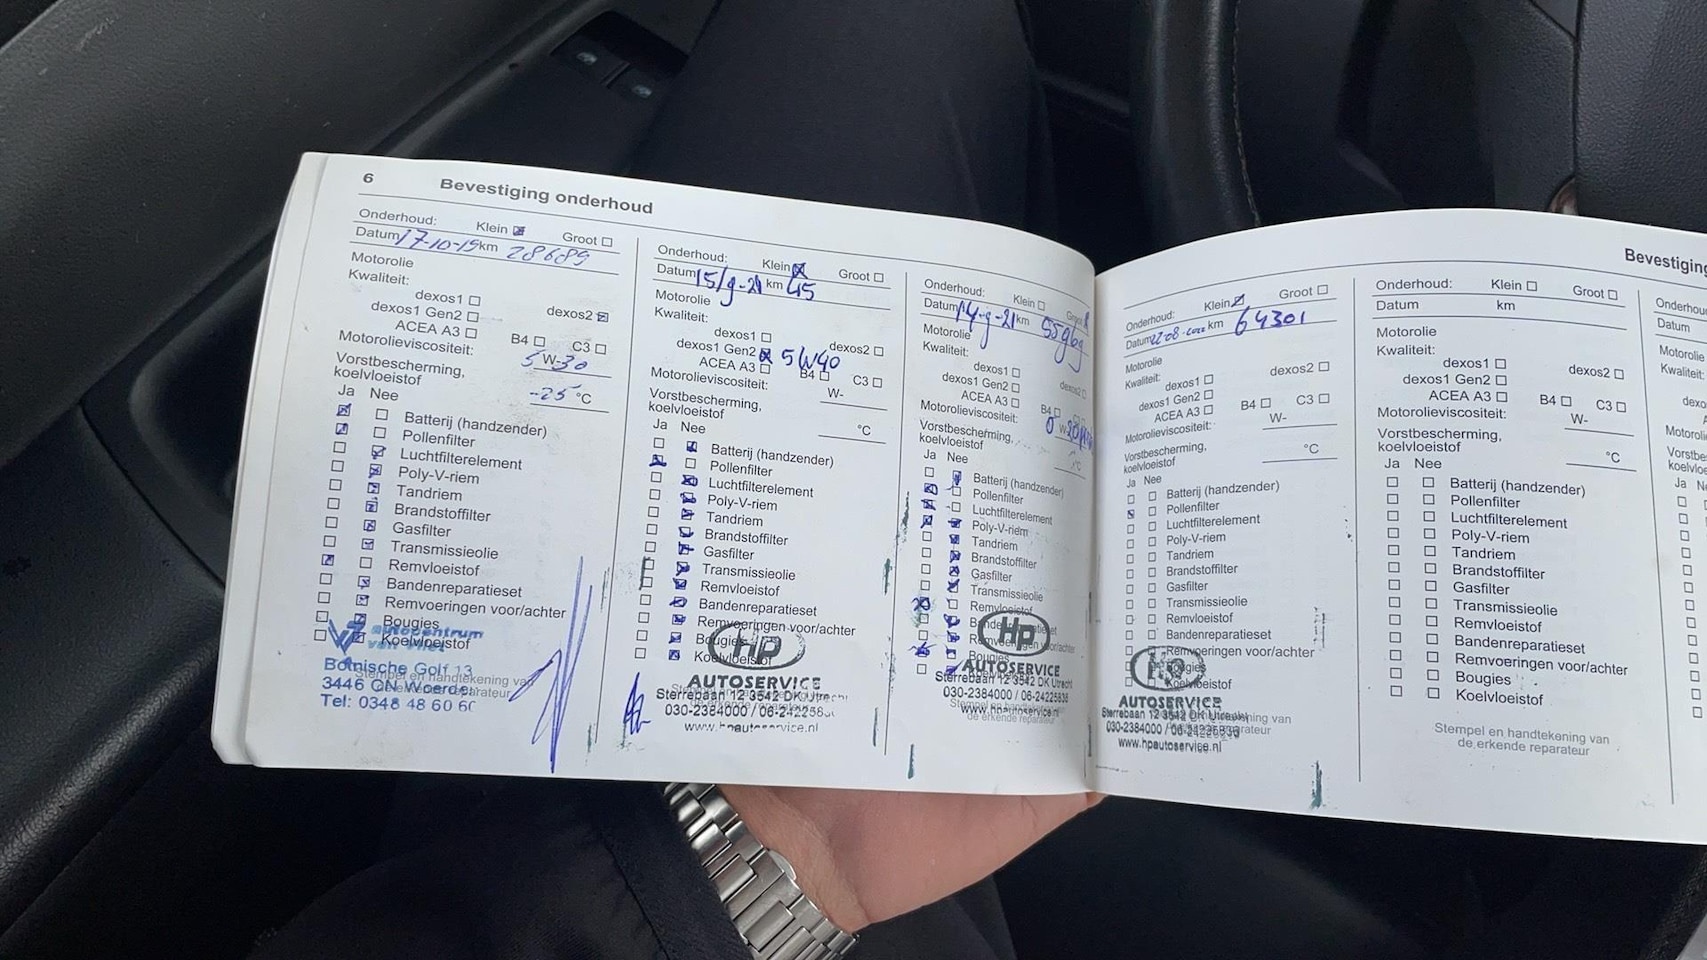 6 Bevestiging onderhoud
Onderhoud: Klein Groot
Datum 17-10-19 km 28689
Motorolie
Kwaliteit:
dexos1
dexos1 Gen2 dexos2
ACEA A3 B4 C3
Motorolieviscositeit: 5 W-30
Vorstbescherming,
koelvloeistof -25 °C
Ja Nee
Batterij (handzender)
Pollenfilter
Luchtfilterelement
Poly-V-riem
Tandriem
Brandstoffilter
Gasfilter
Transmissieolie
Remvloeistof
Bandenreparatieset
Remvoeringen voor/achter
Bougies
Koelvloeistof
autocentrum
van Vliet
Botnische Golf 13
Stempel en handtekening van
3446 CN Woerden
de erkende reparateur
Tel: 0348 48 60 60
Onderhoud: Klein Groot
Datum km 45
Motorolie
Kwaliteit:
dexos1
dexos1 Gen2 5W40 dexos2
ACEA A3 B4 C3
Motorolieviscositeit: W-
Vorstbescherming,
koelvloeistof °C
Ja Nee
Batterij (handzender)
Pollenfilter
Luchtfilterelement
Poly-V-riem
Tandriem
Brandstoffilter
Gasfilter
Transmissieolie
Remvloeistof
Bandenreparatieset
Remvoeringen voor/achter
Bougies
Koelvloeistof
HP
AUTOSERVICE
Sterrebaan 12 3542 DK Utrecht
030-2384000 / 06-24225838
www.hpautoservice.nl
Onderhoud: Klein Groot
Datum 14-9-21 km
Motorolie
Kwaliteit:
dexos1
dexos1 Gen2 dexos2
ACEA A3
Motorolieviscositeit: B4
0 W-20
Vorstbescherming,
koelvloeistof °C
Ja Nee
Batterij (handzender)
Pollenfilter
Luchtfilterelement
Poly-V-riem
Tandriem
Brandstoffilter
Gasfilter
Transmissieolie
Remvloeistof
Bandenreparatieset
Remvoeringen voor/achter
Bougies
HP
AUTOSERVICE
Sterrebaan 12 3542 DK Utrecht
030-2384000 / 06-24225838
Stempel en handtekening
www.hpautoservice.nl
de erkende reparateur
Onderhoud: Klein Groot
Datum 22-08-2022 km 64301
Motorolie
Kwaliteit:
dexos1 dexos2
dexos1 Gen2
ACEA A3 B4 C3
Motorolieviscositeit: W-
Vorstbescherming,
koelvloeistof °C
Ja Nee
Batterij (handzender)
Pollenfilter
Luchtfilterelement
Poly-V-riem
Tandriem
Brandstoffilter
Gasfilter
Transmissieolie
Remvloeistof
Bandenreparatieset
Remvoeringen voor/achter
Bougies
Koelvloeistof
AUTOSERVICE
Sterrebaan 12 3542 DK Utrecht
030-2384000 /
www.hpautoservice.nl
Bevestiging
Onderhoud: Klein Groot
Datum km
Motorolie
Kwaliteit:
dexos1 dexos2
dexos1 Gen2
ACEA A3 B4 C3
Motorolieviscositeit: W-
Vorstbescherming,
koelvloeistof °C
Ja Nee
Batterij (handzender)
Pollenfilter
Luchtfilterelement
Poly-V-riem
Tandriem
Brandstoffilter
Gasfilter
Transmissieolie
Remvloeistof
Bandenreparatieset
Remvoeringen voor/achter
Bougies
Koelvloeistof
Stempel en handtekening van
de erkende reparateur
Datum
Motorolie
Kwaliteit:
Ja